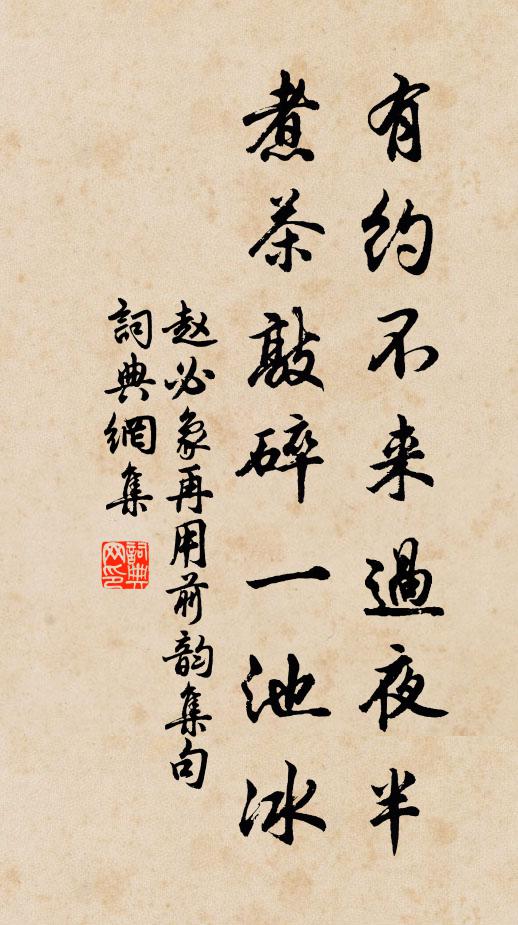 有约不来過夜半
煮茶敲碎一池冰
赵必象再用前韵集句
詞典網集
詞典
网印